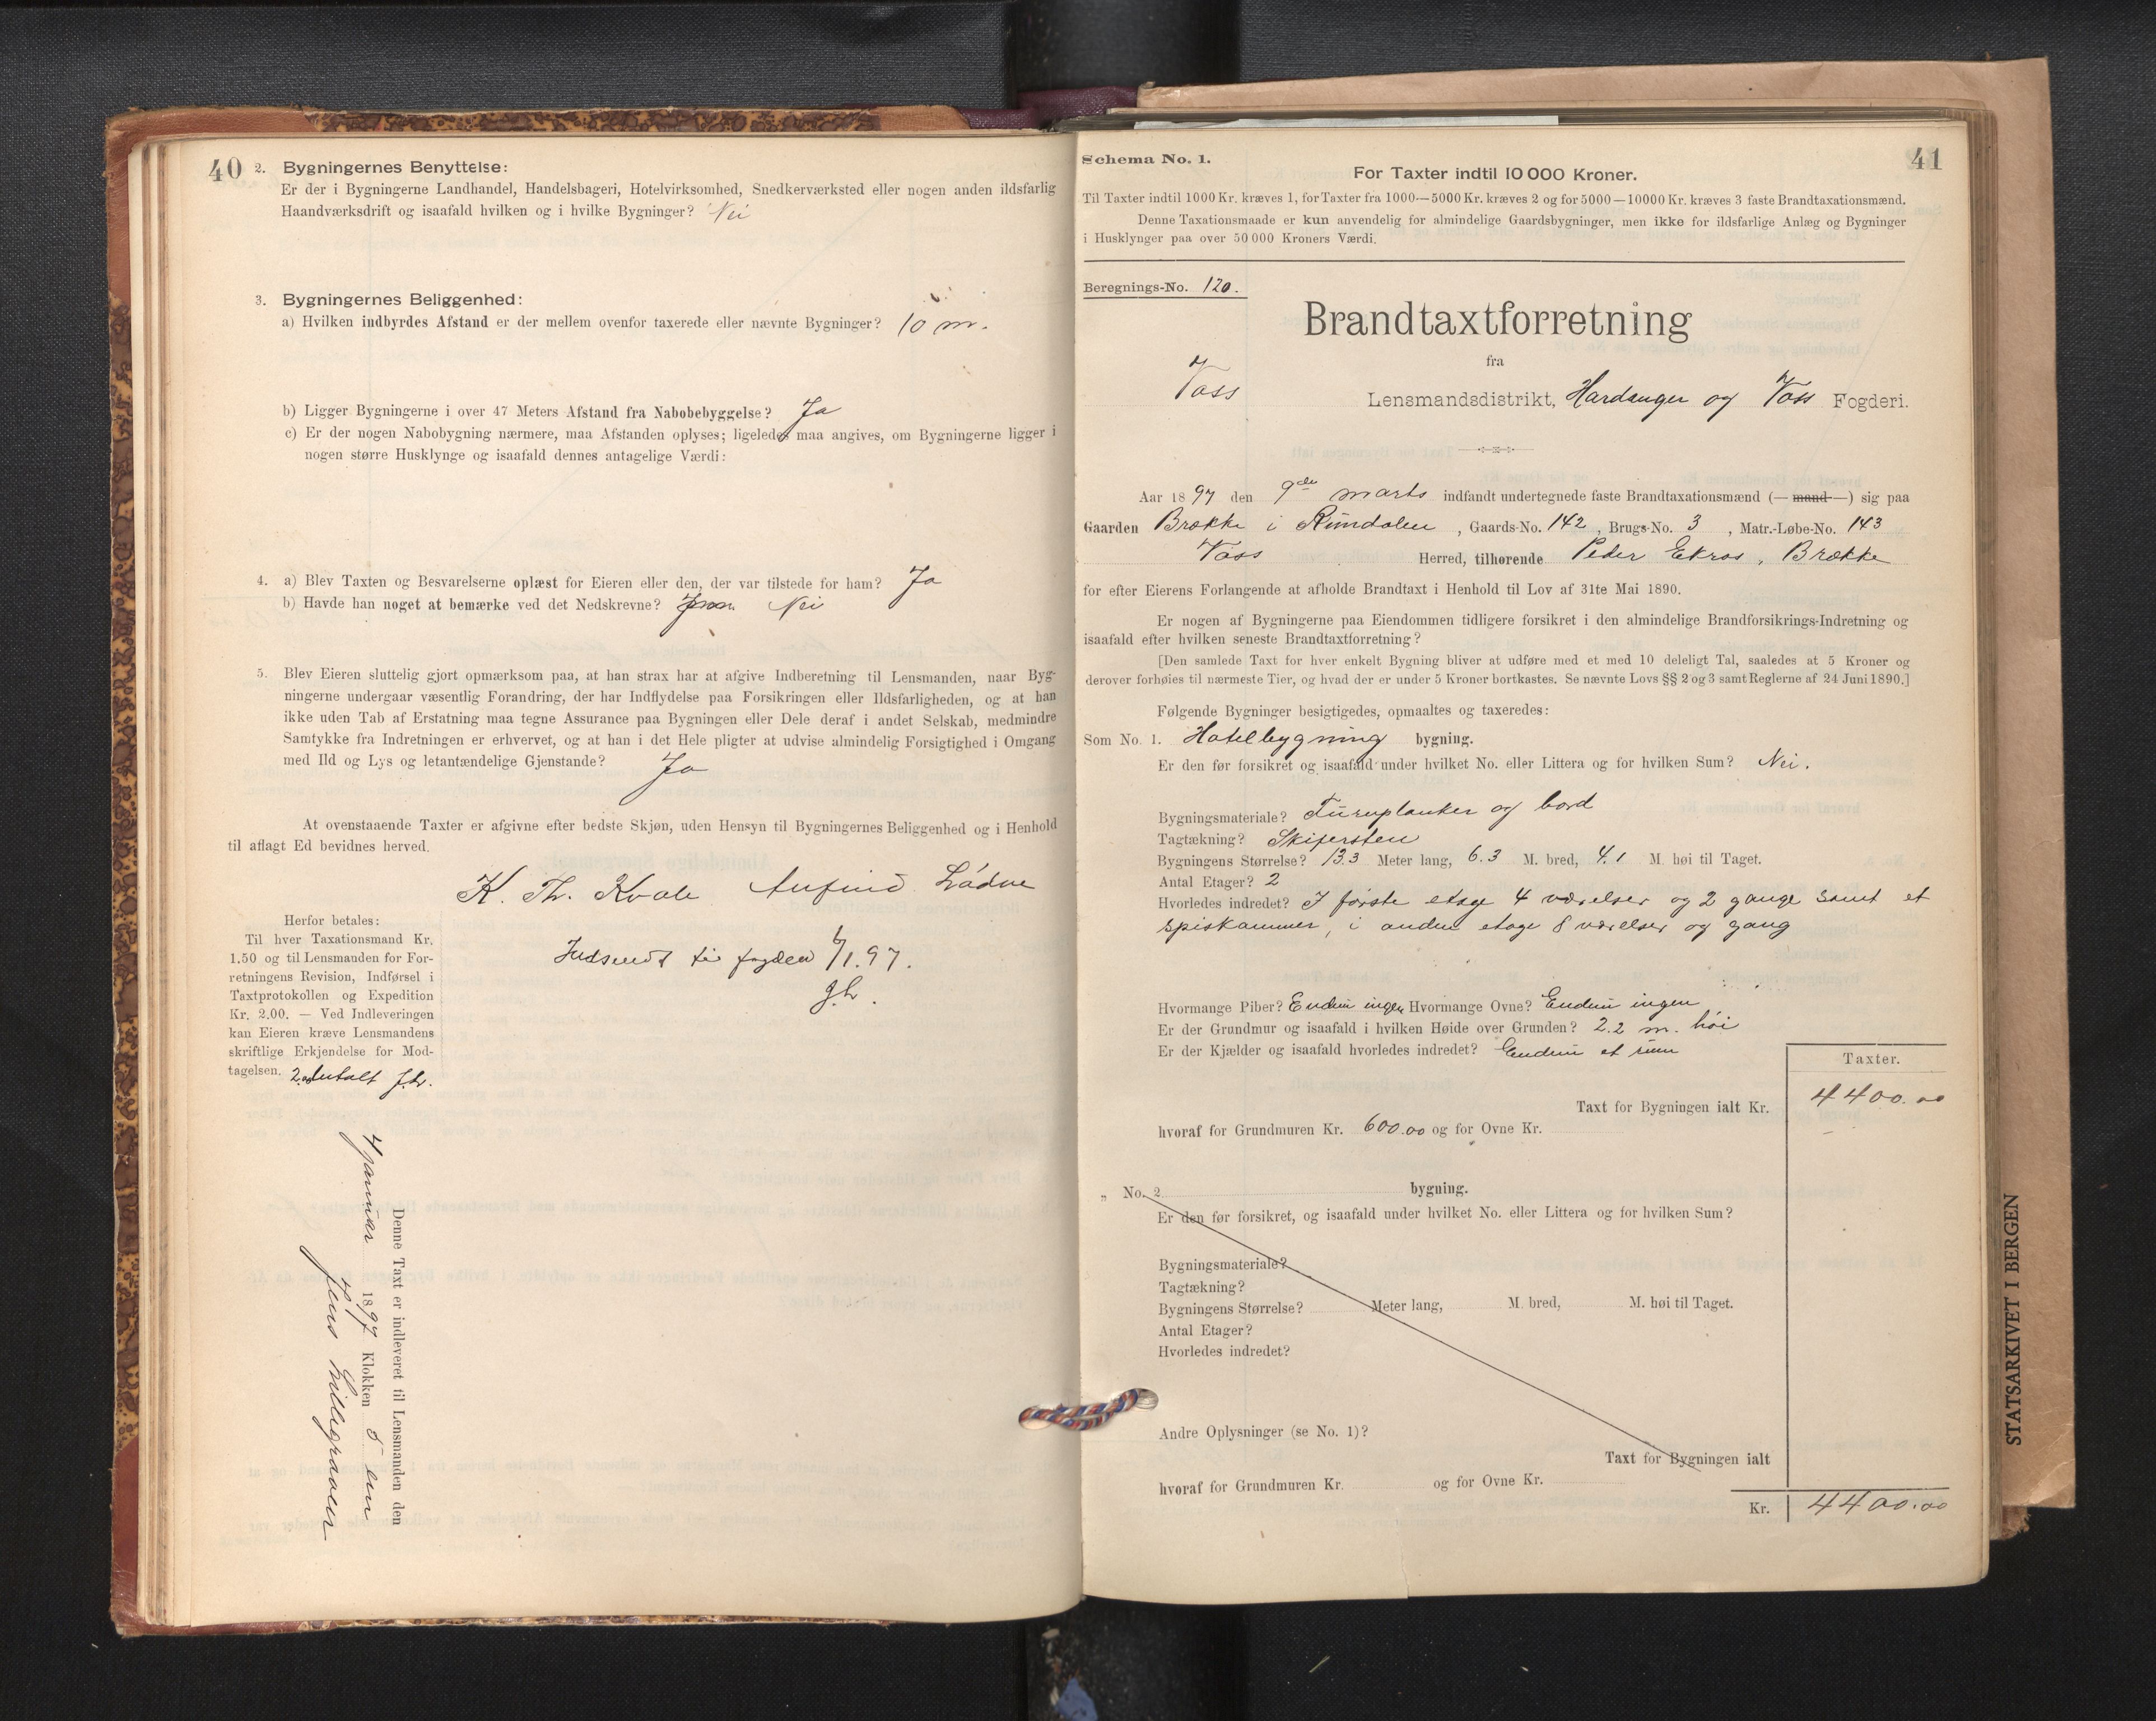 40
2. Bygningernes Benyttelse:
Er der i Bygningerne Landhandel, Handelsbageri, Hotelvirksomhed, Snedkerværksted eller nogen anden ildsfarlig
Haandværksdrift og isaafald hvilken og i hvilke Bygninger? Nei
3. Bygningernes Beliggenhed:
a) Hvilken indbyrdes Afstand er der mellem ovenfor taxerede eller nævnte Bygninger? 10 m.
b) Ligger Bygningerne i over 47 Meters Afstand fra Nabobebyggelse? Ja
c) Er der nogen Nabobygning nærmere, maa Afstanden oplyses; ligeledes maa angives, om Bygningerne ligger i
nogen større Husklynge og isaafald dennes antagelige Værdi:
4. a) Blev Taxten og Besvarelserne oplæst for Eieren eller den, der var tilstede for ham? Ja
b) Havde han noget at bemærke ved det Nedskrevne? Nei
5. Blev Eieren sluttelig gjort opmærksom paa, at han strax har at afgive Indberetning til Lensmanden, naar Byg-
ningerne undergaar væsentlig Forandring, der har Indflydelse paa Forsikringen eller Ildsfarligheden, og at han
ikke uden Tab af Erstatning maa tegne Assurance paa Bygningen eller Dele deraf i andet Selskab, medmindre
Samtykke fra Indretningen er erhvervet, og at han i det Hele pligter at udvise almindelig Forsigtighed i Omgang
med Ild og Lys og letantændelige Gjenstande? Ja
At ovenstaaende Taxter er afgivne efter bedste Skjøn, uden Hensyn til Bygningernes Beliggenhed og i Henhold
til aflagt Ed bevidnes herved.
K. Th. Kvale Anfind Lødve
Herfor betales:
Til hver Taxationsmand Kr.
1.50 og til Lensmanden for For-
retningens Revision, Indførsel i
Taxtprotokollen og Expedition
Kr. 2.00. — Ved Indleveringen
kan Eieren kræve Lensmandens
skriftlige Erkjendelse for Mod-
tagelsen.
Indsendt til fogden 6/1.97.
Denne Taxt er indleveret til Lensmanden den
4 januar 1897 Klokken 5 em
Jens Lillegraven
Schema No. 1.
41
For Taxter indtil 10 000 Kroner.
Til Taxter indtil 1000 Kr. kræves 1, for Taxter fra 1000—5000 Kr. kræves 2 og for 5000—10000 Kr. kræves 3 faste Brandtaxationsmænd.
Denne Taxationsmaade er kun anvendelig for almindelige Gaardsbygninger, men ikke for ildsfarlige Anlæg og Bygninger
i Husklynger paa over 50 000 Kroners Værdi.
Beregnings-No. 120.
Brandtaxtforretning
fra
Voss Lensmandsdistrikt, Hardanger og Voss Fogderi.
Aar 1897 den 9de marts indfandt undertegnede faste Brandtaxationsmænd (— mand —) sig paa
Gaarden Brække i Rundalen, Gaards-No. 142, Brugs-No. 3, Matr.-Løbe-No. 143
Voss Herred, tilhørende Peder Ekros, Brække
for efter Eierens Forlangende at afholde Brandtaxt i Henhold til Lov af 31te Mai 1890.
Er nogen af Bygningerne paa Eiendommen tidligere forsikret i den almindelige Brandforsikrings-Indretning og
isaafald efter hvilken seneste Brandtaxtforretning?
[Den samlede Taxt for hver enkelt Bygning bliver at udføre med et med 10 deleligt Tal, saaledes at 5 Kroner og
derover forhøies til nærmeste Tier, og hvad der er under 5 Kroner bortkastes. Se nævnte Lovs §§ 2 og 3 samt Reglerne af 24 Juni 1890.]
Følgende Bygninger besigtigedes, opmaaltes og taxeredes:
Som No. 1. Hotelbygning bygning.
Er den før forsikret og isaafald under hvilket No. eller Littera og for hvilken Sum? Nei.
Bygningsmateriale? Furuplanker og bord
Tagtækning? Skifersten
Bygningens Størrelse? 13.3 Meter lang, 6.3 M. bred, 4.1 M. høi til Taget.
Antal Etager? 2
Hvorledes indredet? I første etage 4 værelser og 2 gange samt et
spiskammer, i anden etage 8 værelser og gang
Hvormange Piber? Endnu ingen Hvormange Ovne? Endnu ingen
Er der Grundmur og isaafald i hvilken Høide over Grunden? 2.2 m. høi
Er der Kjælder og isaafald hvorledes indredet? Endnu et rum
Taxter.
Taxt for Bygningen ialt Kr. 4400.00
hvoraf for Grundmuren Kr. 600.00 og for Ovne Kr.
„ No. 2 bygning.
Er den før forsikret, og isaafald under hvilket No. eller Littera og for hvilken Sum?
Bygningsmateriale?
Tagtækning?
Bygningens Størrelse? Meter lang, M. bred, M. høi til Taget.
Antal Etager?
Hvorledes indredet?
Andre Oplysninger (se No. 1)?
Taxt for Bygningen ialt
hvoraf for Grundmuren Kr. og for Ovne Kr.
Kr. 4400.00
STATSARKIVET I BERGEN